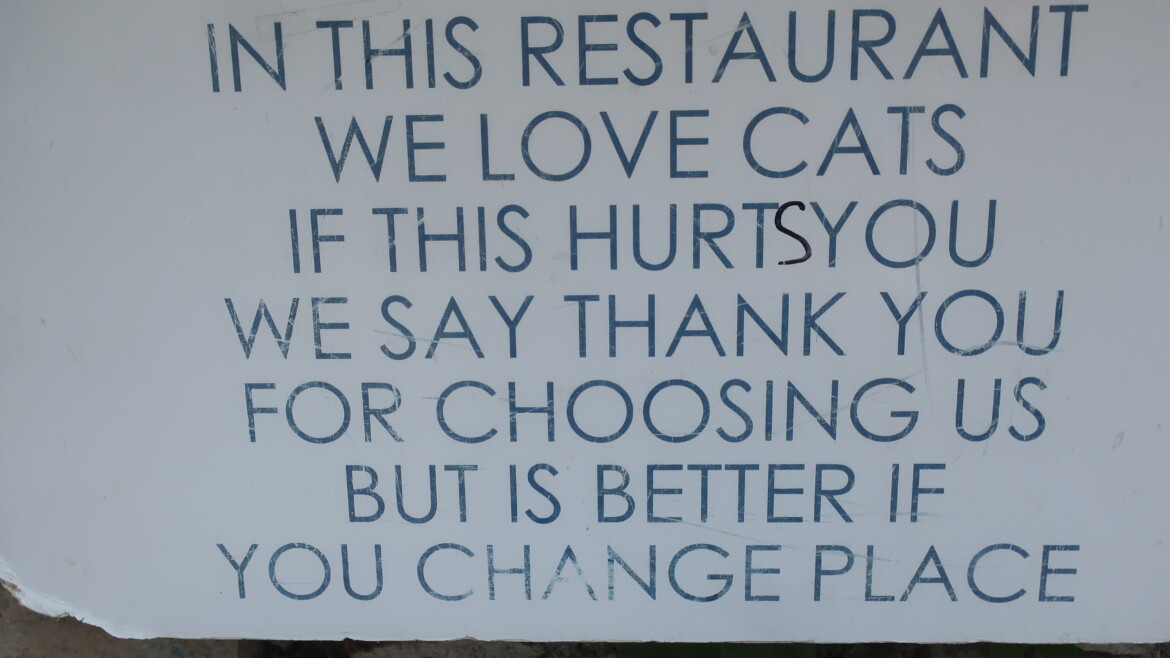 IN THIS RESTAURANT
WE LOVE CATS
IF THIS HURTSYOU
WE SAY THANK YOU
FOR CHOOSING US
BUT IS BETTER IF
YOU CHANGE PLACE